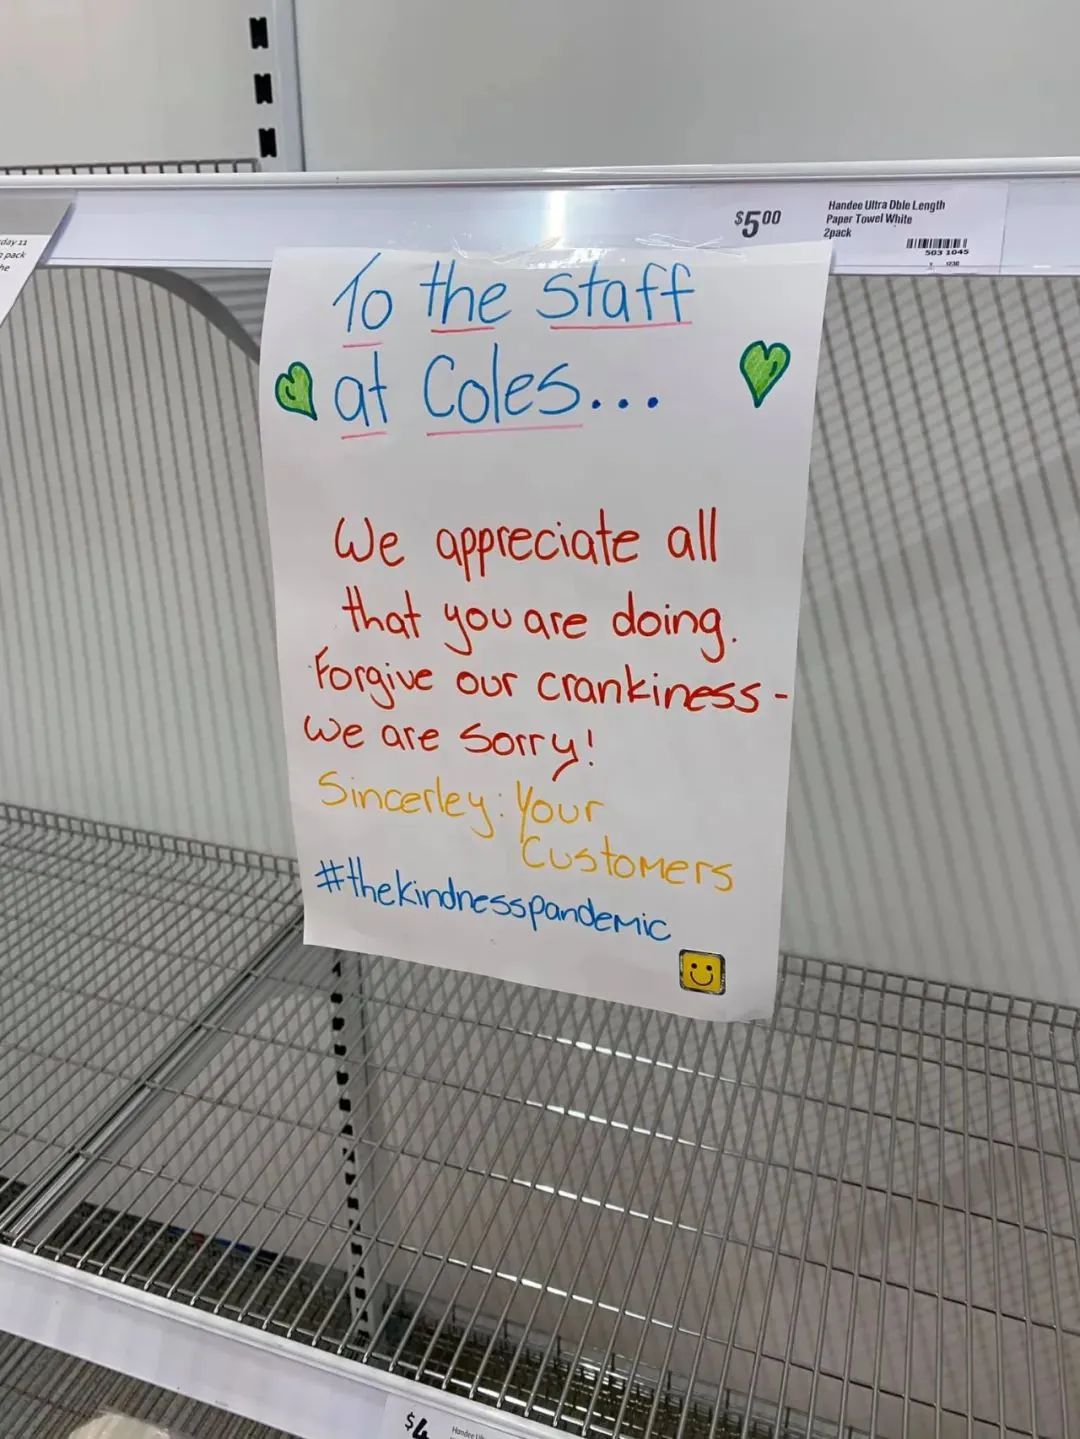 day 11
pack
he
$5.00
Handee Ultra Dble Length
Paper Towel White
2pack
503 1045
To the staff
at Coles...
We appreciate all
that you are doing.
Forgive our crankiness -
we are sorry!
Sincerley: Your
Customers
#thekindnesspandemic
$4
Handee